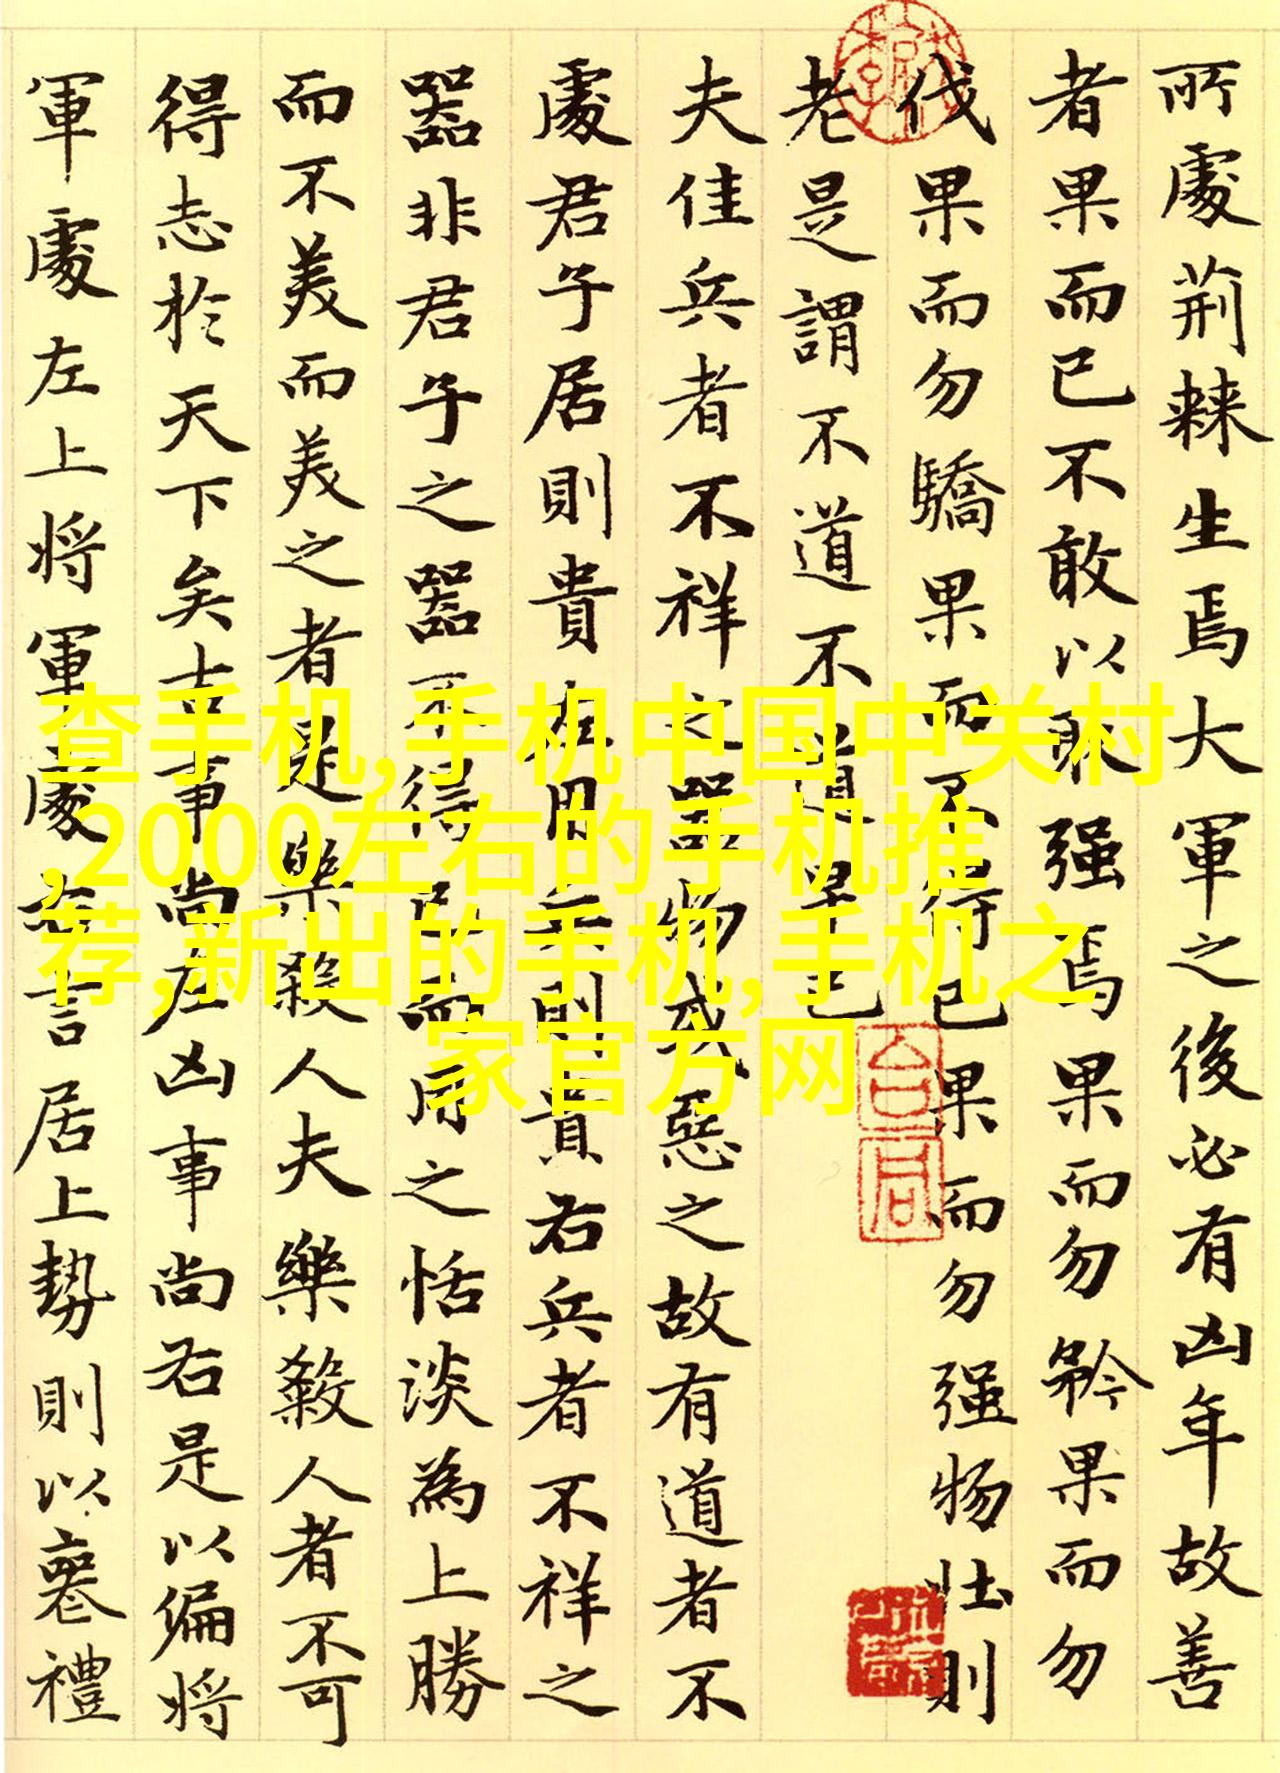 所處荊棘生焉大軍之後必有凶年故善
者果而已不敢以取强焉果而勿矜果而勿
伐果而勿驕果而不得已果而勿强物壯則
老是謂不道不道早已
夫佳兵者不祥之器物或惡之故有道者不
處君子居則貴左用兵則貴右兵者不祥之
器非君子之器不得已而用之恬淡為上勝
而不美而美之者是樂殺人夫樂殺人者不可
得志於天下矣吉事尚左凶事尚右是以偏將
軍處左上將軍處右言居上勢則以喪禮
查手机,手机中国中关村
,2000左右的手机推
荐,新出的手机,手机之
家官方网